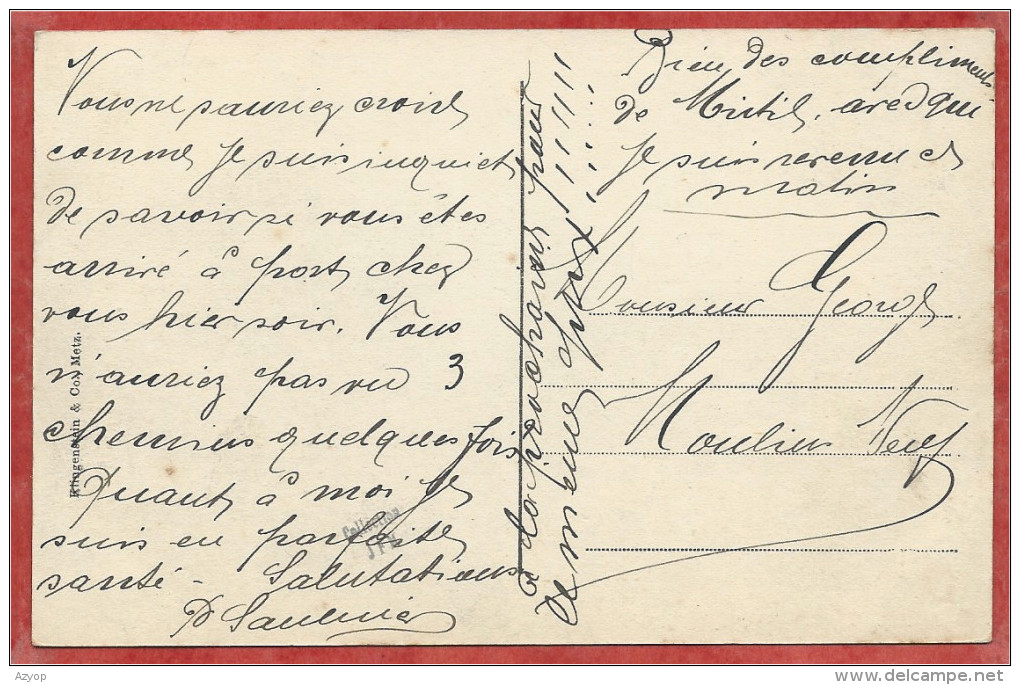 Vous ne sauriez croire
comme je suis inquiet
de savoir si vous êtes
arrivé à port chez
vous hier soir. Vous
n'auriez pas vu 3
chemins quelques fois
Quant à moi je
suis en parfaite
santé - Salutations
P Saulnier
Bien des compliments
de Mutil, avec qui
je suis revenu ce
matin
à la prochaine pour
le même prix !!!!!!
Monsieur George
Moulin Neuf
Klingenstein & Co., Metz.
Collection
JPL
Azyop
delcampe.net